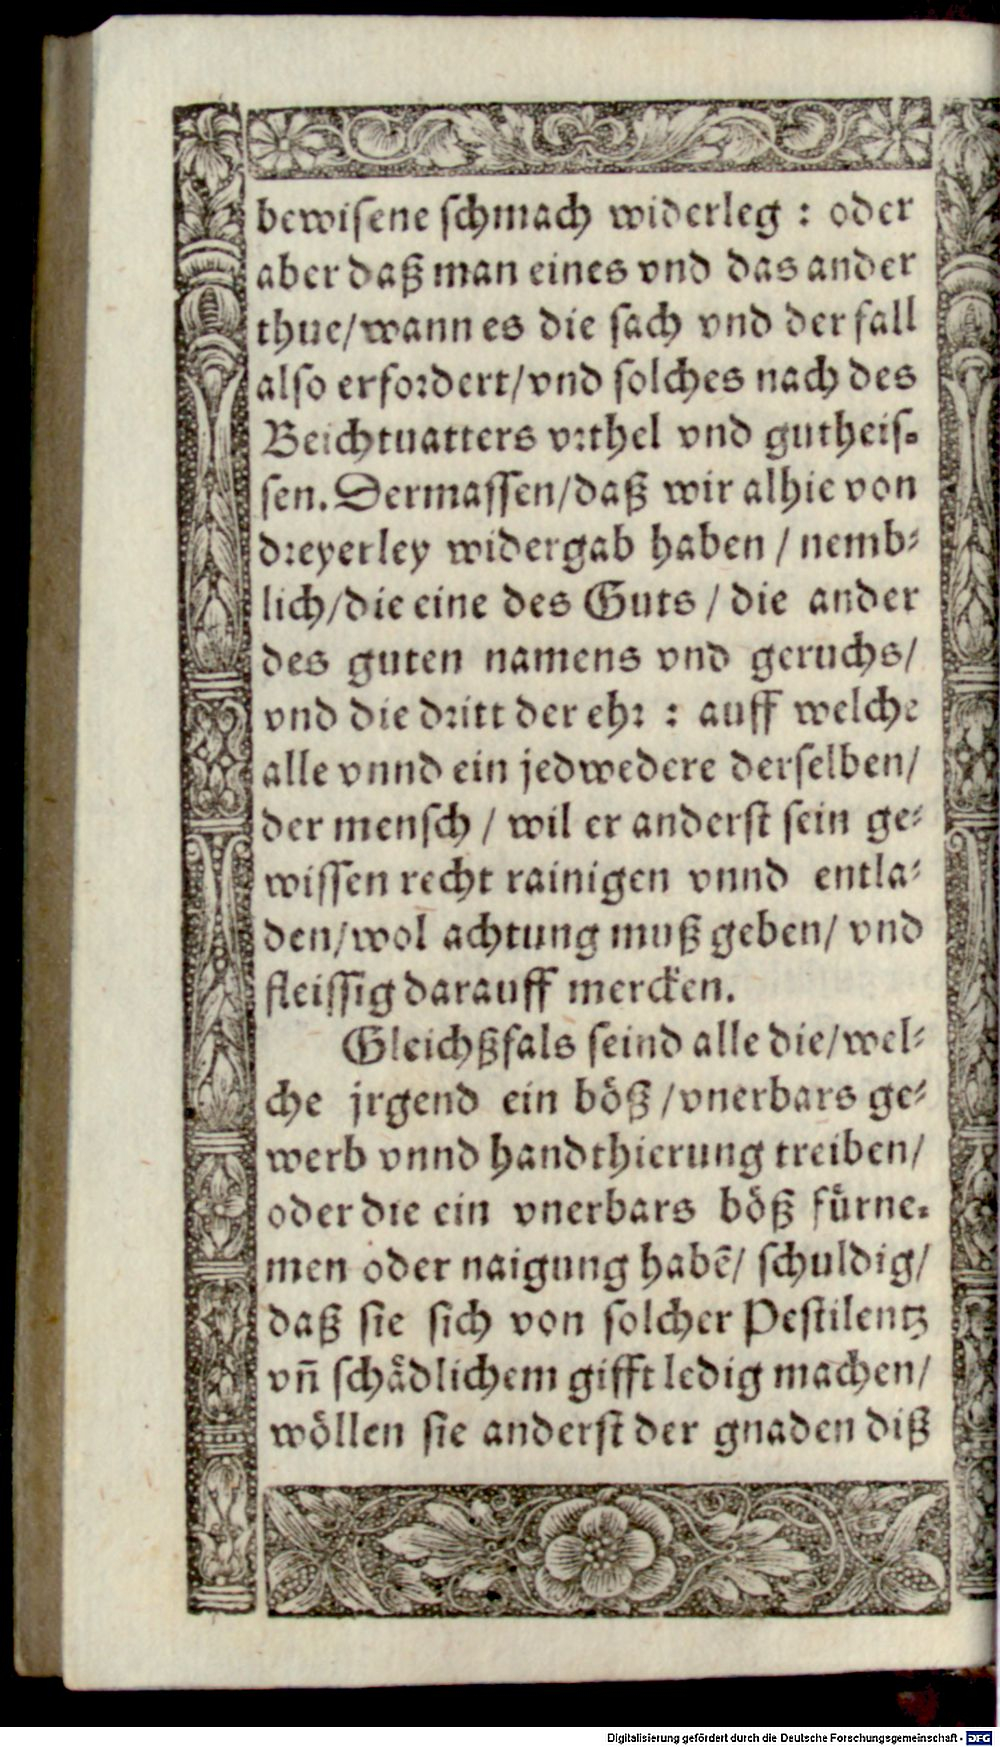 bewisene schmach widerleg : oder
aber daß man eines vnd das ander
thue/wann es die sach vnd der fall
also erfordert/vnd solches nach des
Beichtuatters vrthel vnd gutheis-
sen. Dermassen/daß wir alhie von
dreyerley widergab haben / nemb-
lich/die eine des Guts / die ander
des guten namens vnd geruchs/
vnd die dritt der ehr : auff welche
alle vnnd ein jedwedere derselben/
der mensch / wil er anderst sein ge-
wissen recht rainigen vnnd entla-
den/wol achtung muß geben/ vnd
fleissig darauff mercken.
Gleichßfals seind alle die/wel-
che jrgend ein böß /vnerbars ge-
werb vnnd handthierung treiben/
oder die ein vnerbars böß fürne-
men oder naigung habẽ/ schuldig/
daß sie sich von solcher Pestilentz
vñ schädlichem gifft ledig machen/
wöllen sie anderst der gnaden diß
Digitalisierung gefördert durch die Deutsche Forschungsgemeinschaft - DFG